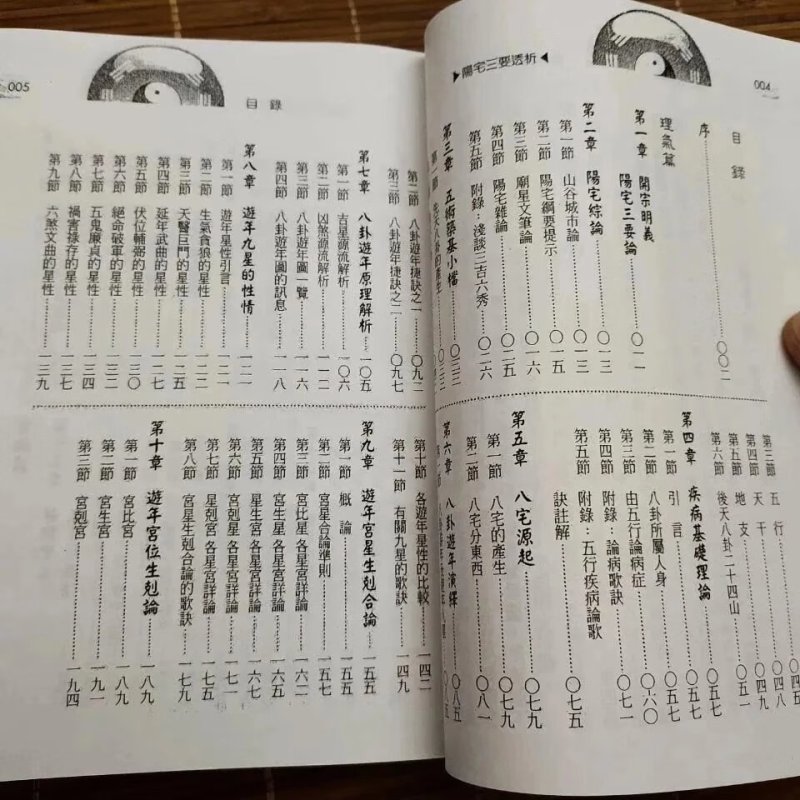 004
▶陽宅三要透析◀
目錄
序……〇〇二
理氣篇
第一章 開宗明義
陽宅三要論……〇一一
第二章 陽宅綜論……〇一三
第一節 山谷城市論……〇一三
第二節 陽宅綱要提示……〇一五
第三節 廟星文筆論……〇一六
第四節 陽宅雜論……〇二五
第五節 附錄：淺談三吉六秀……〇二六
第三章 五術築基小檔……〇三三
第三節 五行……〇四五
第四節 天干……〇四八
第五節 地支……〇四九
第六節 後天八卦二十四山……〇五一
第四章 疾病基礎理論……〇五七
第一節 引言……〇五七
第二節 八卦所屬人身……〇五七
第三節 由五行論病症……〇六〇
第四節 附錄：論病歌訣……〇七一
第五節 附錄：五行疾病論歌
訣註解……〇七五
第五章 八宅源起……〇七九
第一節 八宅的產生……〇七九
第二節 八宅分東西……〇八一
第六章 八卦遊年演繹……〇八五
005
目錄
第二節 八卦遊年捷訣之一……〇九二
第三節 八卦遊年捷訣之二……〇九七
第七章 八卦遊年原理解析……一〇五
第一節 吉星源流解析……一〇六
第二節 凶煞源流解析……一一一
第三節 八卦遊年圖一覽……一一六
第四節 八卦遊年圖的訊息……一一八
第八章 遊年九星的性情……一二一
第一節 遊年星性引言……一二一
第二節 生氣貪狼的星性……一二二
第三節 天醫巨門的星性……一二五
第四節 延年武曲的星性……一二七
第五節 伏位輔弼的星性……一三〇
第六節 絕命破軍的星性……一三二
第七節 五鬼廉貞的星性……一三四
第八節 禍害祿存的星性……一三七
第九節 六煞文曲的星性……一三九
第十節 各遊年星性的比較……一四二
第十一節 有關九星的歌訣……一四九
第九章 遊年宮星生剋合論……一五五
第一節 概論……一五五
第二節 宮星合論準則……一五七
第三節 宮比星 各星宮詳論……一六二
第四節 宮生星 各星宮詳論……一六五
第五節 星生宮 各星宮詳論……一六七
第六節 宮剋星 各星宮詳論……一七一
第七節 星剋宮 各星宮詳論……一七五
第八節 宮星生剋合論的歌訣……一七九
第十章 遊年宮位生剋論……一八九
第一節 宮比宮……一八九
第二節 宮生宮……一九一
第三節 宮剋宮……一九四